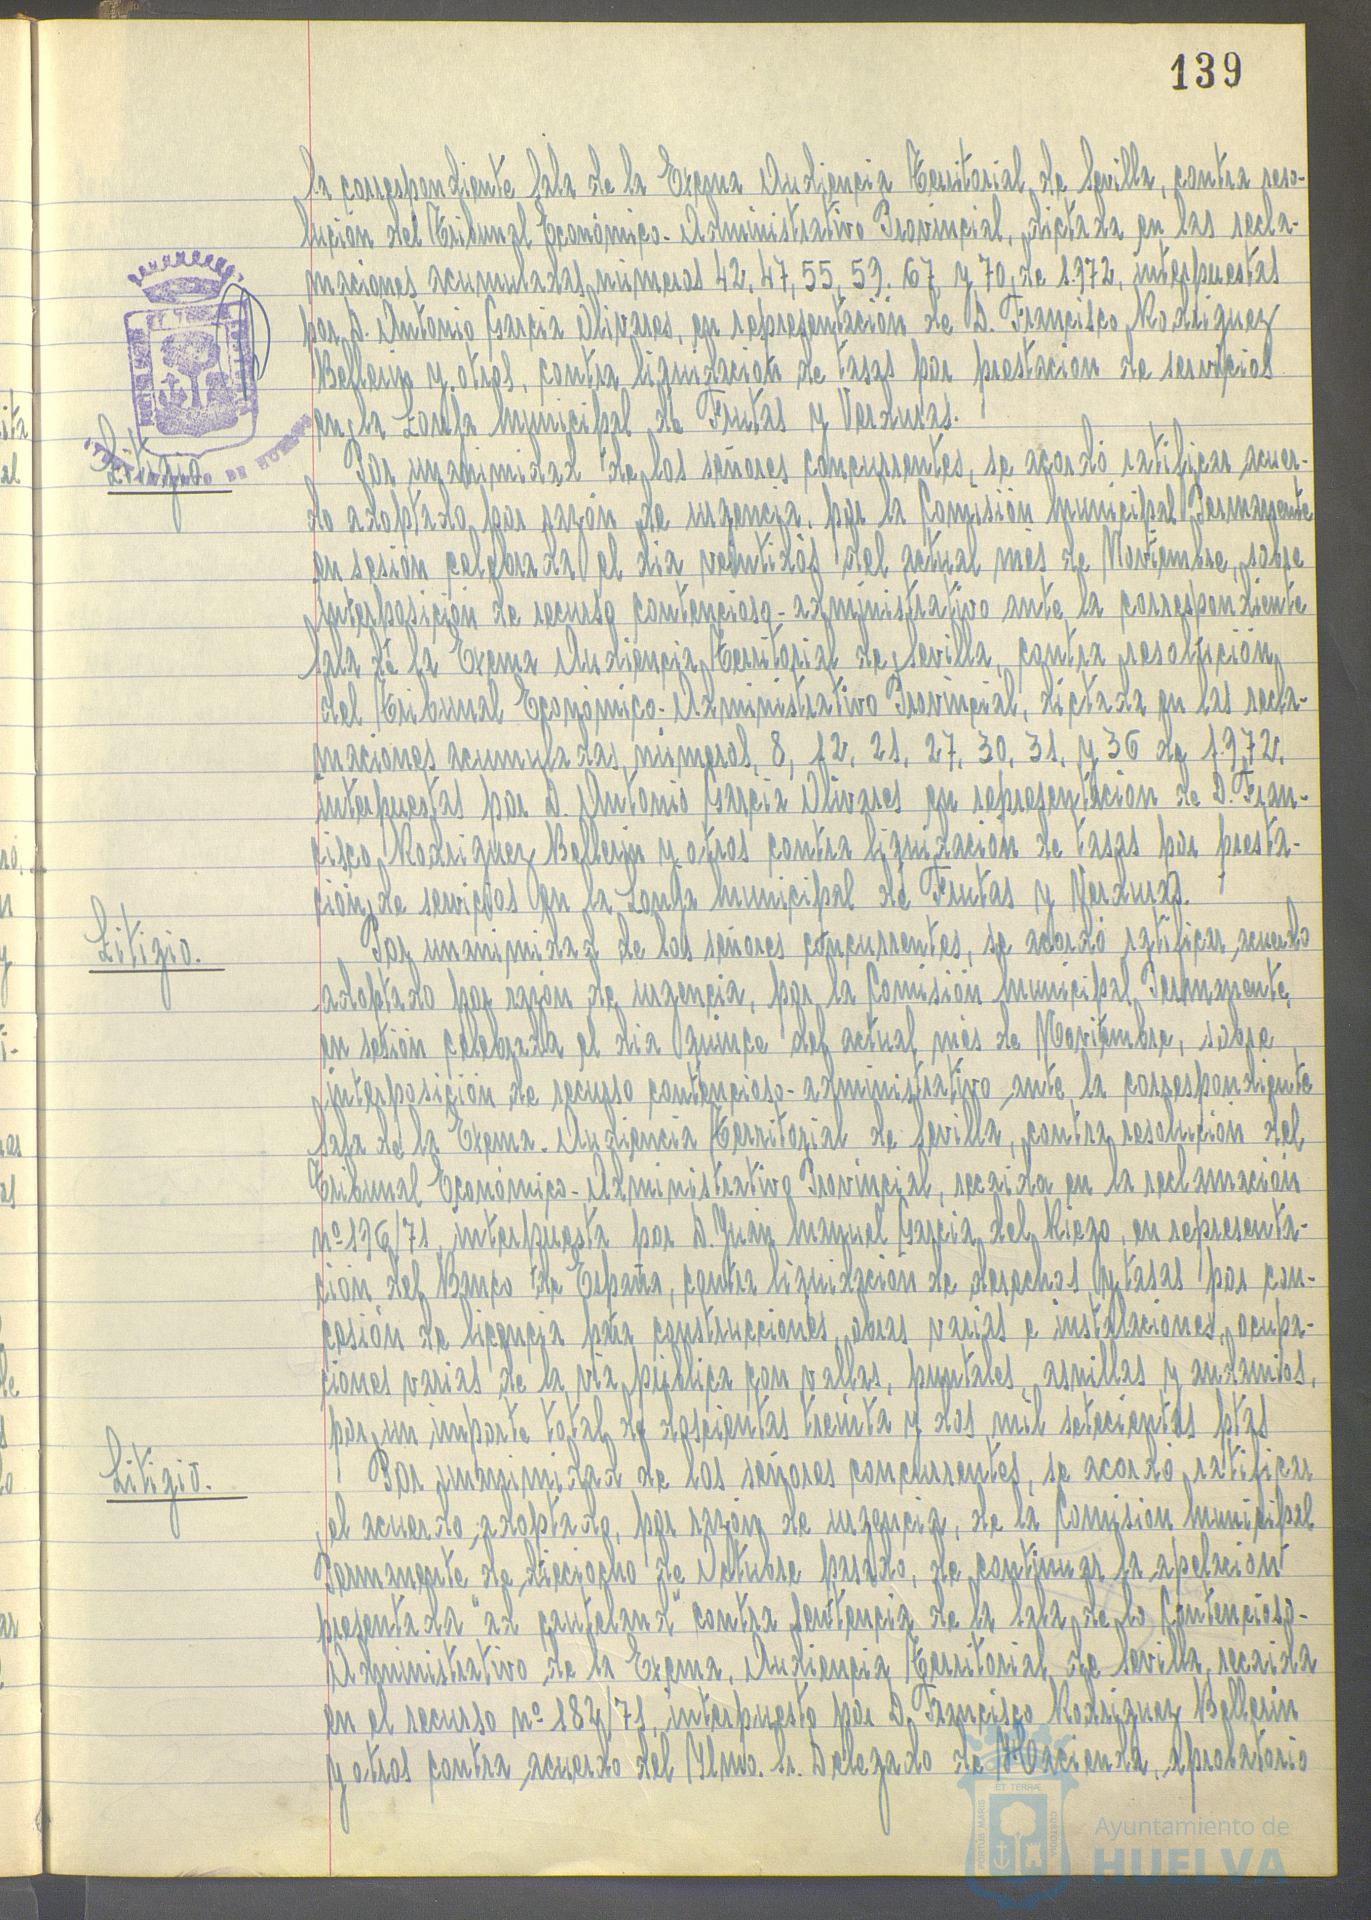 139
la correspondiente Sala de la Excma Audiencia Territorial de Sevilla, contra reso-
lución del Tribunal Económico-Administrativo Provincial, dictada en las recla-
maciones acumuladas números 42, 47, 55, 59. 67 y 70, de 1.972, interpuestas
por D. Antonio Garcia Olivares, en representación de D. Francisco Rodriguez
Bellerin y otros, contra liquidación de tasas por prestación de servicios
en la Lonja Municipal de Frutas y Verduras.
Litigio
Por unanimidad de los señores concurrentes, se acordó ratificar acuer-
do adoptado por razón de urgencia, por la Comisión Municipal Permanente
en sesión celebrada el dia veintidós del actual mes de Noviembre, sobre
interposición de recurso contencioso-administrativo ante la correspondiente
Sala de la Excma Audiencia Territorial de Sevilla, contra resolución
del Tribunal Económico-Administrativo Provincial, dictada en las recla-
maciones acumuladas números, 8, 12, 21, 27, 30, 31, y 36 de 1.972,
interpuestas por D. Antonio Garcia Olivares en representación de D. Fran-
cisco Rodriguez Bellerin y otros contra liquidación de tasas por presta-
ción de servicios en la Lonja Municipal de Frutas y Verduras.
Litigio.
Por unanimidad de los señores concurrentes, se acordó ratificar acuerdo
adoptado por razón de urgencia, por la Comisión Municipal Permanente,
en sesión celebrada el dia quince del actual mes de Noviembre, sobre
interposición de recurso contencioso-administrativo ante la correspondiente
Sala de la Excma. Audiencia Territorial de Sevilla, contra resolución del
Tribunal Económico-Administrativo Provincial, recaida en la reclamación
nº 196/71, interpuesta por D. Juan Manuel Garcia del Riego, en representa-
ción del Banco de España, contra liquidación de derechos y tasas por con-
cesión de licencia para construcciones, obras varias e instalaciones, ocupa-
ciones varias de la via pública con vallas, puntales, asnillas y andamios,
por un importe total de doscientas treinta y dos mil setecientas ptas
Litigio.
Por unanimidad de los señores concurrentes, se acordó ratificar
el acuerdo adoptado, por razón de urgencia, de la Comisión Municipal
Permanente de dieciocho de Octubre pasado, de continuar la apelación
presentada "ad cautelam" contra Sentencia de la Sala de lo Contencioso-
Administrativo de la Excma. Audiencia Territorial de Sevilla, recaida
en el recurso nº 182/71, interpuesto por D. Francisco Rodriguez Bellerin
y otros contra acuerdo del Ilmo. Sr. Delegado de Hacienda, aprobatorio
ET TERRÆ
PORTUS MARIS
CUSTODIA
Ayuntamiento de
HUELVA